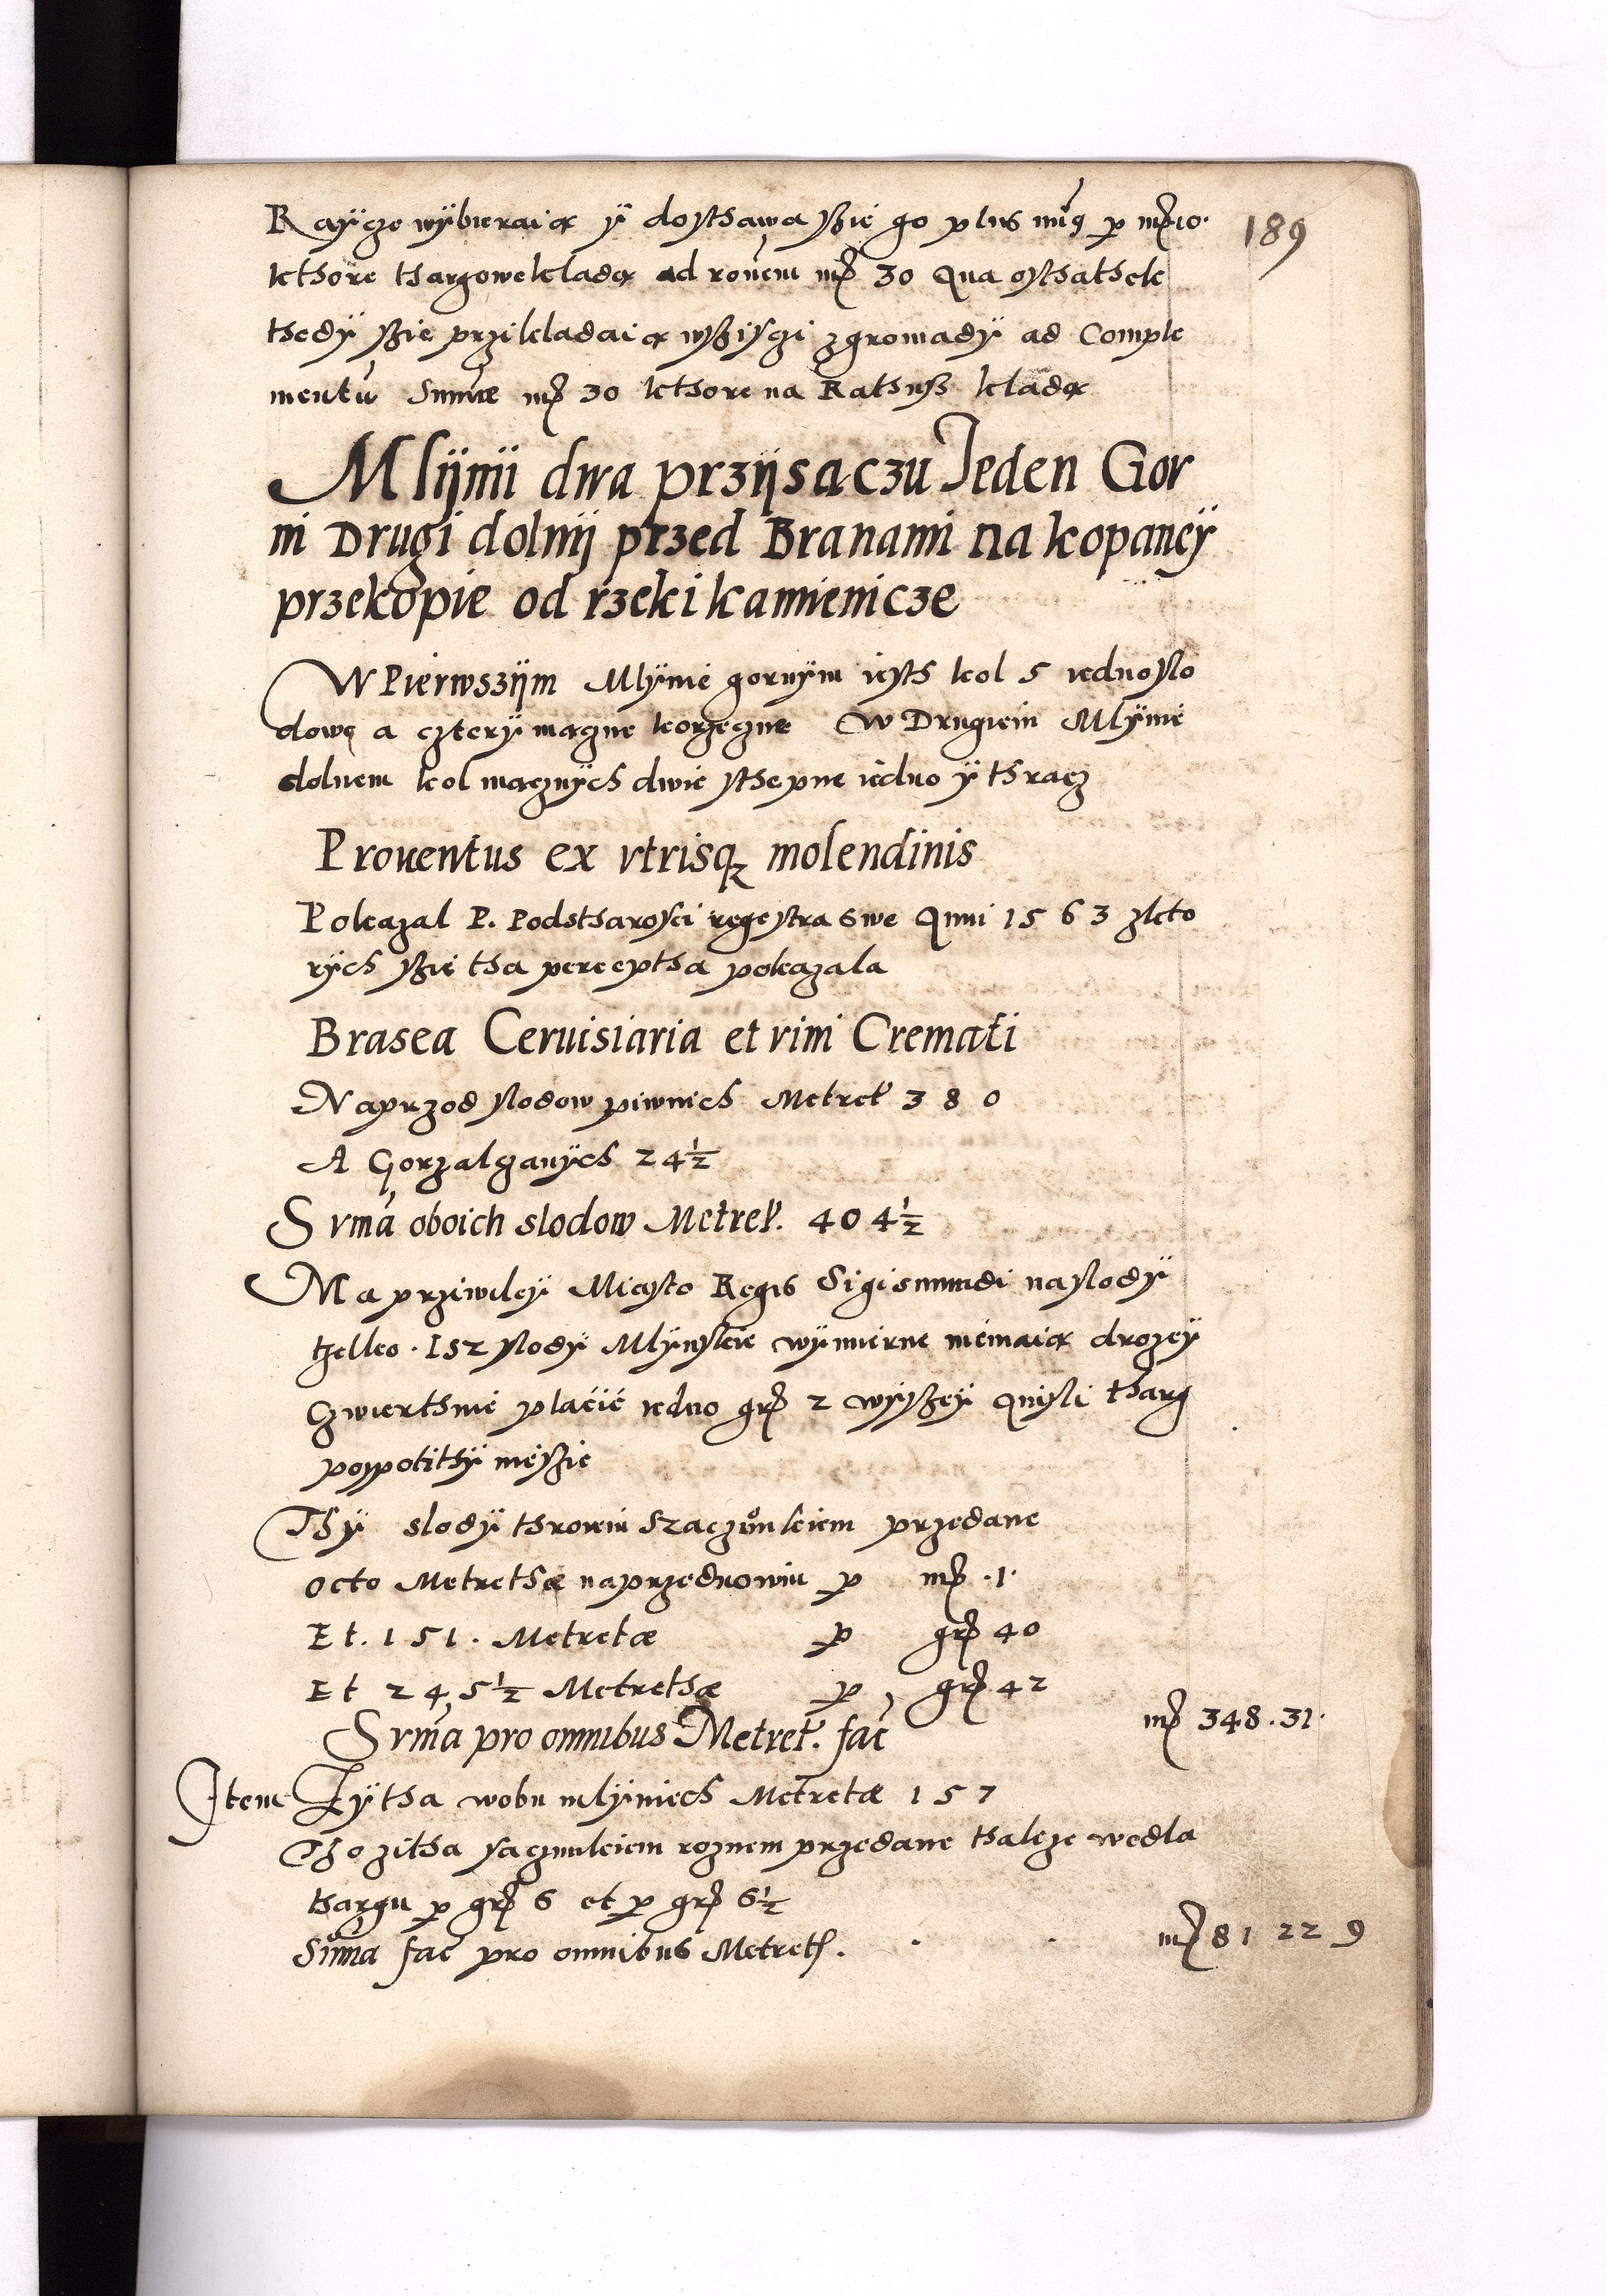 Rayçze wÿbieraią ÿ dosthawa szie go plus minus p mrc 10. 189
kthore thargowe kladą ad ronem mrc 30 Qua osthathek
thedÿ szie przikladaią wszisczi zgromadÿ ad Comple
mentū Summæ mrc 30 kthore na Rathusz kladą
Mlÿnii dwa przÿsaczu Jeden Gor
ni Drugi dolnÿ przed Branami na kopaneÿ
przekopie od rzeki kamienicze
W Pierwszÿm Mlÿnie gornÿm iesth kol 5 iedno slo
dowe a czterÿ mączne korzeczne W Drugiem Mlÿnie
dolnem kol mącznÿch dwie sthepne iedno ÿ thracz
Prouentus ex vtrisq molendinis
Pokazal P. Podstharosci regestra swe Anni 1563 z kto
rÿch szie tha perceptha pokazala
Brasea Ceruisiaria et vini Cremati
Naprzod slodow piwnich Metret 380
A Gorzalczanÿch 24½
Svmā oboich slodow Metret. 404½
Ma prziwileÿ Miasto Regis Sigismundi na slodÿ
tÿlko. Isz slodÿ Mlÿnskie wÿmierne niemaią drozeÿ
Czwierthnie płacić iedno grs 2 wÿsszeÿ Anisli tharg
pospolithÿ niesie
Thÿ slodÿ throiem szaczūnkiem przedane
Octo Metrethæ naprzednowiu p mrc .1.
Et. 151. Metretæ p grs 40
Et 245½ Metrethæ p grs 42
Svmā pro omnibus Metret. fac mrc 348.31.
Item Zÿtha wobu mlÿniech Metretæ 157
Tho zitha saczunkiem roznem przedane thakze wedla
thargu p grs 6 et p grs 6½
Sūma fac pro omnibus Metret. mrc 81 22 9